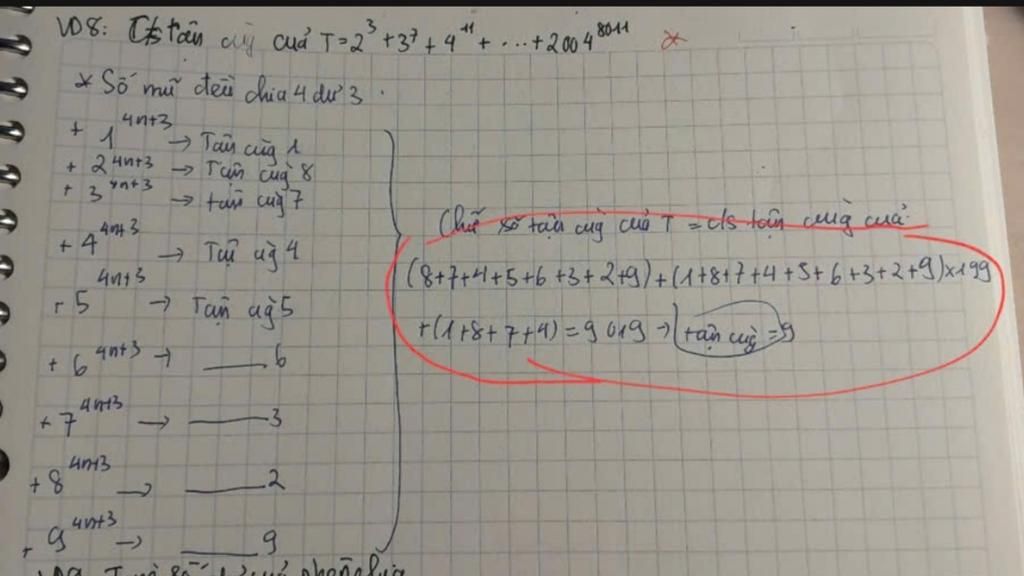 VD8: Cs tận cg̀ của T = 2³ + 3⁷ + 4¹¹ + ... + 2004⁸⁰¹¹
* Số mũ đều chia 4 dư 3.
+ 1⁴ⁿ⁺³ → Tận cùg 1
+ 2⁴ⁿ⁺³ → Tận cùg 8
+ 3⁴ⁿ⁺³ → tận cùg 7
+ 4⁴ⁿ⁺³ → Tận cg̀ 4
+ 5⁴ⁿ⁺³ → Tận cg̀ 5
+ 6⁴ⁿ⁺³ → ___ 6
+ 7⁴ⁿ⁺³ → ___ 3
+ 8⁴ⁿ⁺³ → ___ 2
+ 9⁴ⁿ⁺³ → ___ 9
Chữ số tận cùg của T = c/s tận cùg của:
(8+7+4+5+6+3+2+9) + (1+8+7+4+5+6+3+2+9) × 199
+ (1+8+7+4) = 9019 → tận cùg = 9